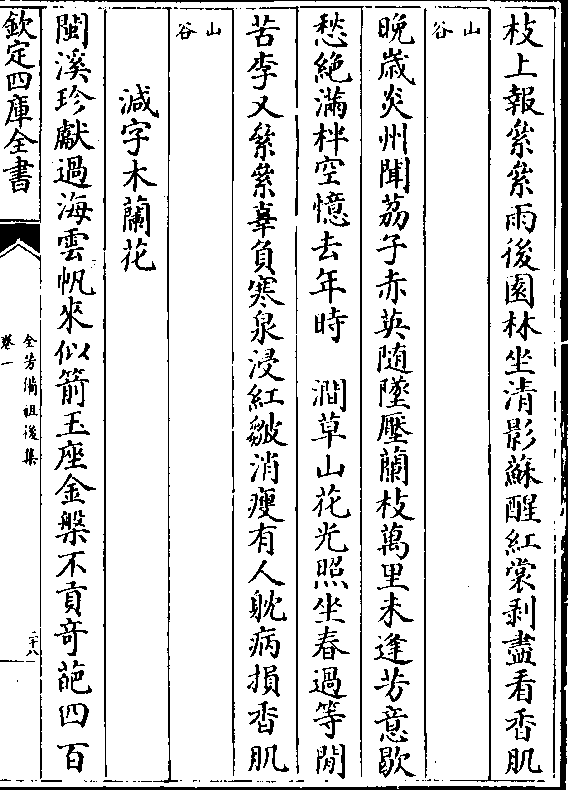 枝上報纍纍雨後園林坐清影蘇醒紅裳剥盡看香肌
山谷
晚歲炎州聞荔子赤英隨墜壓蘭枝萬里未逢芳意歇
愁絶滿枓空憶去年時　澗草山花光照坐春過等閒
苦李又纍纍辜負寒泉浸紅皺消瘦有人躭病損香肌
山谷
減字木蘭花
閩溪珍獻過海雲帆來似箭玉座金槃不貢奇葩四百
欽定四庫全書
全芳備祖後集
卷一
二十八